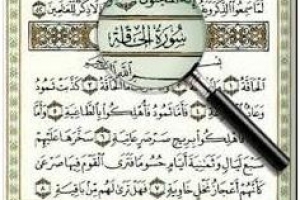 لَمَّا سَمِعُوا الذِّكْرَ
سُورَةُ الْحَاقَّةِ
الْحَاقَّةُ ١ مَا الْحَاقَّةُ ٢ وَمَا أَدْرَاكَ مَا الْحَاقَّةُ ٣ كَذَّبَتْ ثَمُودُ
وَعَادٌ بِالْقَارِعَةِ ٤ فَأَمَّا ثَمُودُ فَأُهْلِكُوا بِالطَّاغِيَةِ ٥ وَأَمَّا
عَادٌ فَأُهْلِكُوا بِرِيحٍ صَرْصَرٍ عَاتِيَةٍ ٦ سَخَّرَهَا عَلَيْهِمْ
سَبْعَ لَيَالٍ وَثَمَانِيَةَ أَيَّامٍ حُسُومًا فَتَرَى الْقَوْمَ فِيهَا صَرْعَى
كَأَنَّهُمْ أَعْجَازُ نَخْلٍ خَاوِيَةٍ ٧ فَهَلْ تَرَى لَهُم مِّن بَاقِيَةٍ ٨